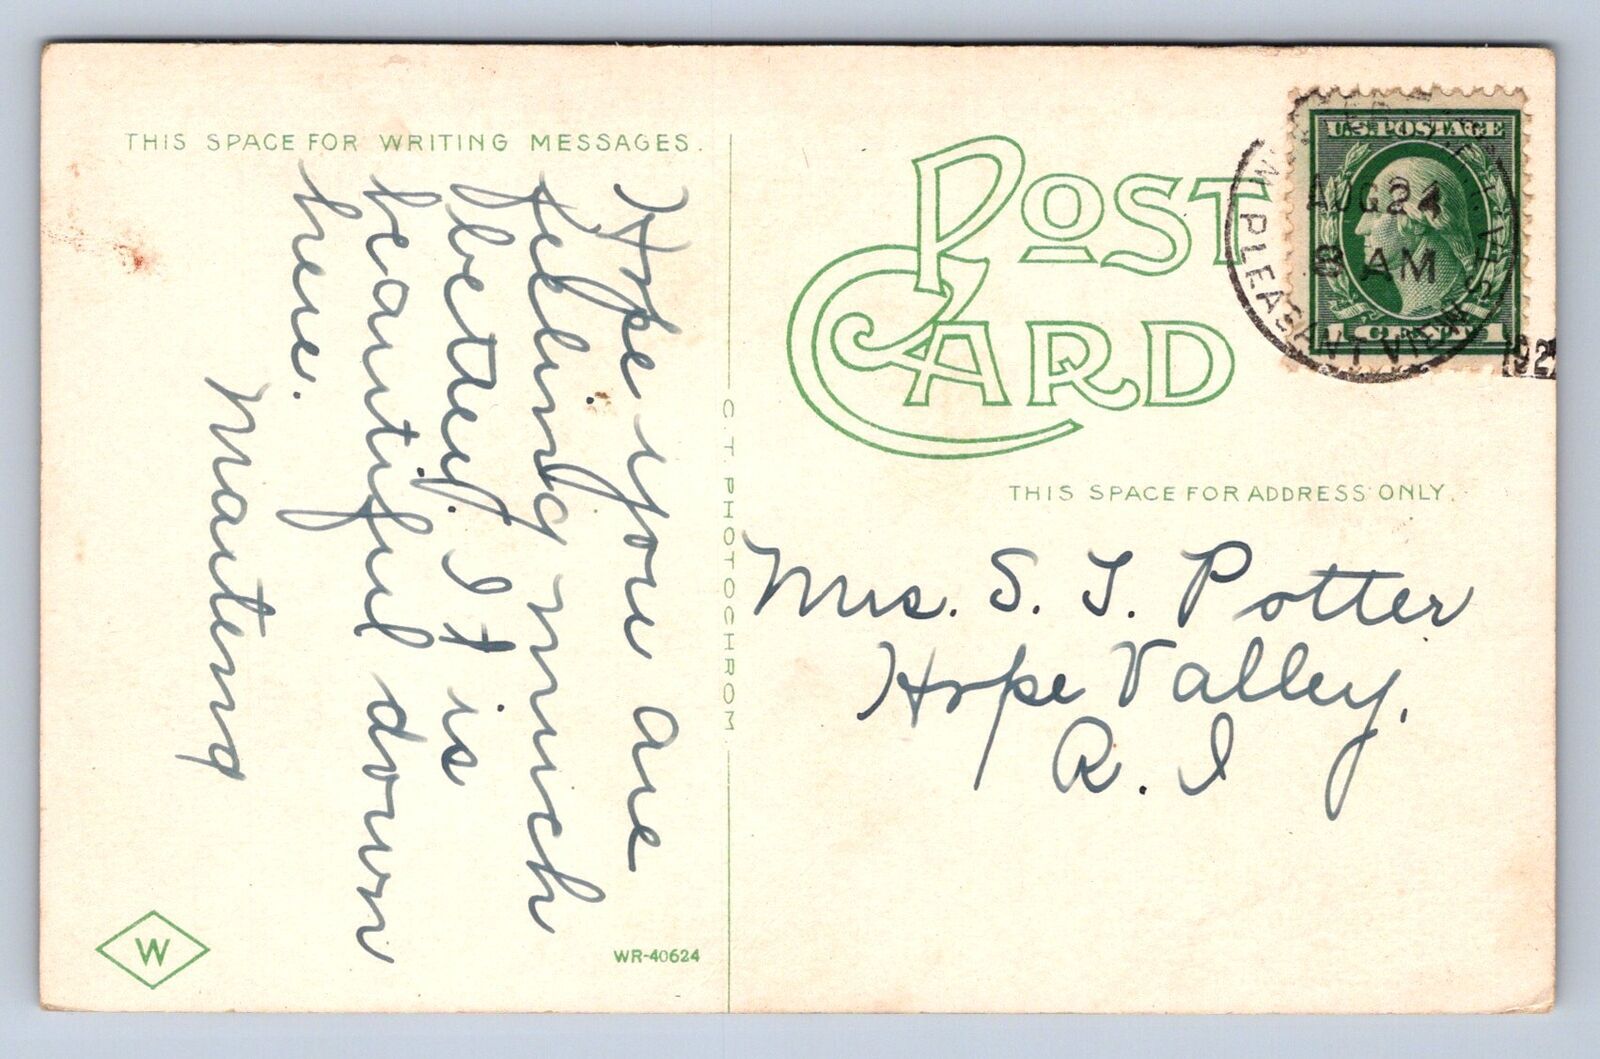 THIS SPACE FOR WRITING MESSAGES.
Hope you are
feeling much
better. It is
beautiful down
here.
C.T. PHOTOCHROM.
W
WR-40624
POST
CARD
U.S. POSTAGE
1 CENT 1
AUG 24
8 AM
PLEASANT VIEW STA.
THIS SPACE FOR ADDRESS ONLY.
Mrs. S. J. Potter
Hope Valley,
R. I